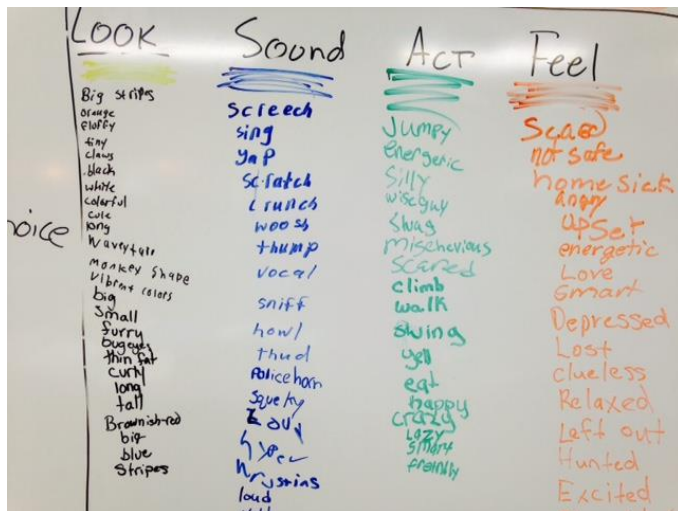 LOOK
Big stripes
orange
fluffy
tiny
claws
black
white
colorful
cute
long
Wavey tale
monkey shape
vibrent colors
big
small
furry
bug eyes
thin fat
curly
long
tall
Brownish-red
big
blue
Stripes
Sound
Screech
sing
yap
scratch
crunch
woosh
thump
vocal
sniff
howl
thud
Police horn
squeky
loud
ACT
Jumpy
energetic
Silly
wiseguy
Swag
mischevious
scared
climb
walk
swing
yell
eat
happy
crazy
Lazy
smart
friendly
Feel
Scaed
not safe
home sick
angry
upset
energetic
Love
smart
Depressed
Lost
clueless
Relaxed
Left out
Hunted
Excited